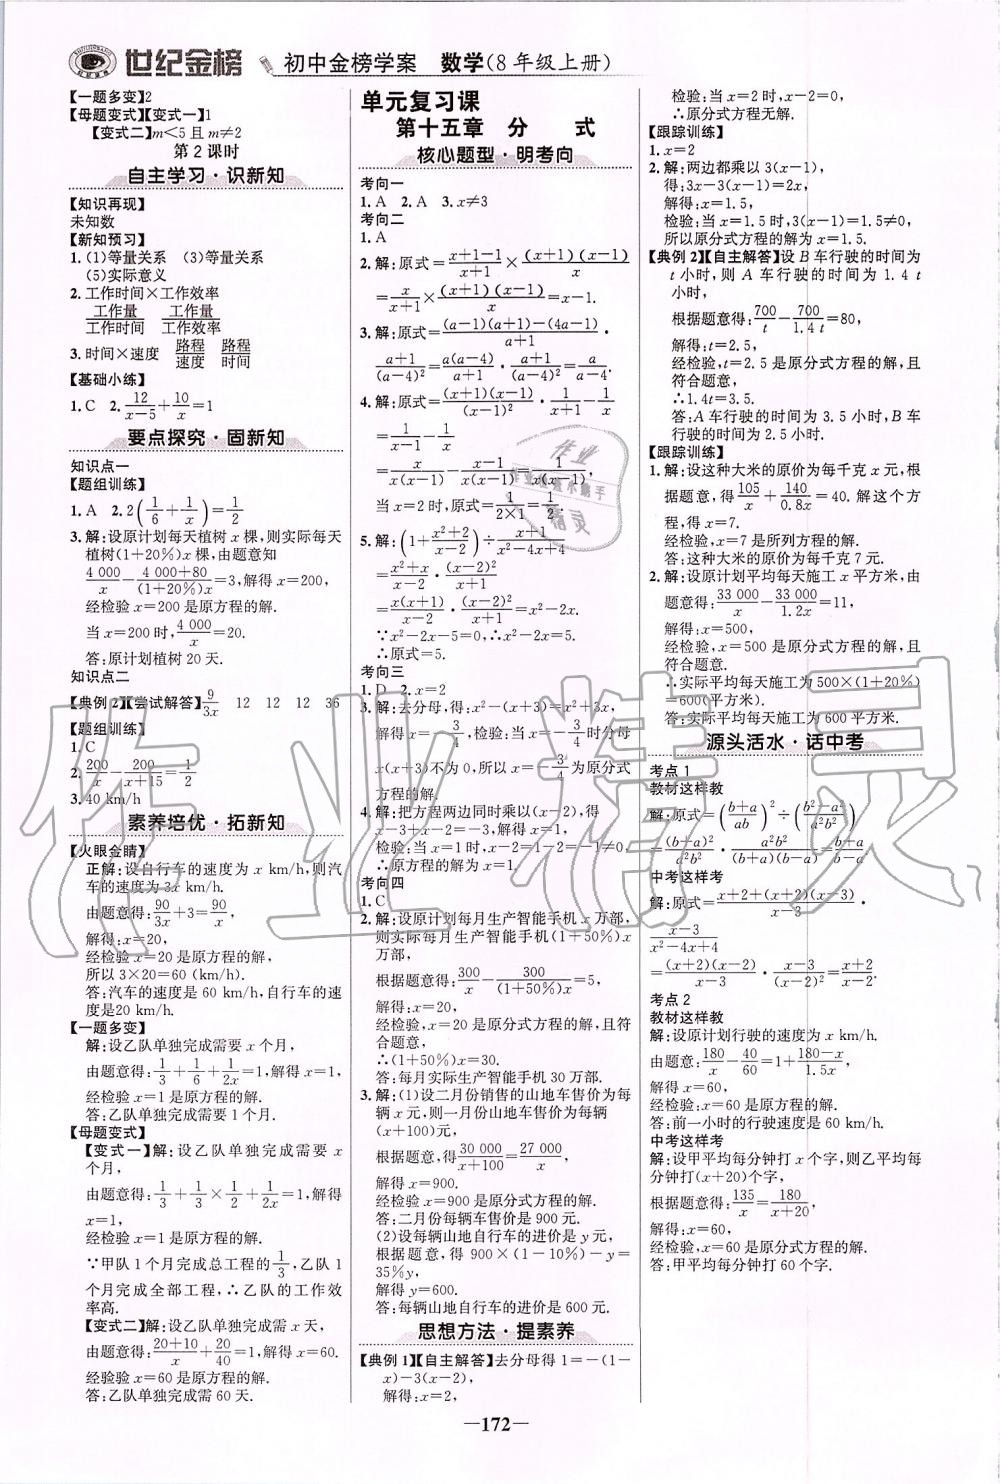 世纪金榜 初中金榜学案 数学(8年级上册)
【一题多变】2
【母题变式】【变式一】1
【变式二】m<5且m≠2
第2课时
自主学习·识新知
【知识再现】
未知数
【新知预习】
1.(1)等量关系 (3)等量关系
(5)实际意义
2.工作时间×工作效率
工作量/工作时间 工作量/工作效率
3.时间×速度 路程/速度 路程/时间
【基础小练】
1.C 2.12/(x-5)+10/x=1
要点探究·固新知
知识点一
【题组训练】
1.A 2.2(1/6+1/x)=1/2
3.解:设原计划每天植树x棵,则实际每天
植树(1+20%)x棵,由题意知
4 000/x-(4 000+80)/((1+20%)x)=3,解得x=200,
经检验x=200是原方程的解.
当x=200时,4 000/x=20.
答:原计划植树20天.
知识点二
【典例2】【尝试解答】9/3x 12 12 12 36
【题组训练】
1.C
2.200/x-200/(x+15)=1/2
3.40 km/h
素养培优·拓新知
【火眼金睛】
正解:设自行车的速度为x km/h,则汽
车的速度为3x km/h.
由题意得:90/3x+3=90/x,
解得:x=20,
经检验x=20是原方程的解,
所以3×20=60(km/h).
答:汽车的速度是60 km/h,自行车的速
度是20 km/h.
【一题多变】
解:设乙队单独完成需要x个月,
由题意得:1/3+1/6+1/2x=1,解得x=1,
经检验x=1是原方程的解.
答:乙队单独完成需要1个月.
【母题变式】
【变式一】解:设乙队单独完成需要x
个月,
由题意得:1/3+1/3×1/2+1/2x=1,解得
x=1,
经检验x=1是原方程的解,
∵甲队1个月完成总工程的1/3,乙队1
个月完成全部工程,∴乙队的工作效
率高.
【变式二】解:设乙队单独完成需x天,
由题意得:(20+10)/x+20/40=1,解得x=60.
经检验,x=60是原方程的解.
答:乙队单独完成需60天.
单元复习课
第十五章 分 式
核心题型·明考向
考向一
1.A 2.A 3.x≠3
考向二
1.A
2.解:原式=(x+1-1)/(x+1)×(x+1)(x-1)/x
=x/(x+1)×(x+1)(x-1)/x=x-1.
3.解:原式=((a-1)(a+1)-(4a-1))/(a+1)·
(a+1)/(a-4)²=a(a-4)/(a+1)·(a+1)/(a-4)²=a/(a-4).
4.解:原式=(x+1)(x-1)/(x-1)²·1/(x+1)-1/x
=1/(x-1)-1/x
=x/(x(x-1))-(x-1)/(x(x-1))=1/(x(x-1)),
当x=2时,原式=1/(2×1)=1/2.
5.解:(1+(x²+2)/(x-2))÷(x+1)/(x²-4x+4)
=(x²+x)/(x-2)·(x-2)²/(x+1)
=x(x+1)/(x-2)·(x-2)²/(x+1)=x²-2x.
∵x²-2x-5=0,∴x²-2x=5,
∴原式=5.
考向三
1.D 2.x=2
3.解:去分母,得:x²-(x+3)=x²+3x,
解得x=-3/4,检验:当x=-3/4时分母
x(x+3)不为0,所以x=-3/4为原分式
方程的解.
4.解:把方程两边同时乘以(x-2),得
x-3+x-2=-3,解得x=1,
检验:当x=1时,x-2=1-2=-1≠0,
∴原方程的解为x=1.
考向四
1.C
2.解:设原计划每月生产智能手机x万部,
则实际每月生产智能手机(1+50%)x
万部,
根据题意得:300/x-300/((1+50%)x)=5,
解得:x=20,
经检验,x=20是原分式方程的解,且符
合题意,
∴(1+50%)x=30.
答:每月实际生产智能手机30万部.
3.解:(1)设二月份销售的山地车售价为每
辆x元,则一月份山地车售价为每辆
(x+100)元,
根据题意得:30 000/(x+100)=27 000/x,
解得x=900.
经检验x=900是原分式方程的解.
答:二月份每辆车售价是900元.
(2)设每辆山地自行车的进价是y元,
根据题意,得900×(1-10%)-y=
35%y,
解得y=600.
答:每辆山地自行车的进价是600元.
思想方法·提素养
【典例1】【自主解答】去分母得1=-(1-
x)-3(x-2),
解得:x=2,
检验:当x=2时,x-2=0,
∴原分式方程无解.
【跟踪训练】
1.x=2
2.解:两边都乘以3(x-1),
得:3x-3(x-1)=2x,
解得:x=1.5,
检验:当x=1.5时,3(x-1)=1.5≠0,
所以原分式方程的解为x=1.5.
【典例2】【自主解答】设B车行驶的时间为
t小时,则A车行驶的时间为1.4t
小时,
根据题意得:700/t-700/1.4t=80,
解得:t=2.5,
经检验,t=2.5是原分式方程的解,且
符合题意,
∴1.4t=3.5.
答:A车行驶的时间为3.5小时,B车
行驶的时间为2.5小时.
【跟踪训练】
1.解:设这种大米的原价为每千克x元,根
据题意,得105/x+140/0.8x=40.解这个方
程,得x=7.
经检验,x=7是所列方程的解.
答:这种大米的原价为每千克7元.
2.解:设原计划平均每天施工x平方米,由
题意得:33 000/x-33 000/1.2x=11,
解得:x=500,
经检验,x=500是原分式方程的解,且
符合题意.
∴实际平均每天施工为500×(1+20%)
=600(平方米).
答:实际平均每天施工为600平方米.
源头活水·话中考
考点1
教材这样教
解:原式=((b+a)/ab)²÷((b²-a²)/a²b²)
=(b+a)²/a²b²·a²b²/((b+a)(b-a))=(b+a)/(b-a).
中考这样考
解:原式=(x+2+(x+2)(x-3))/(x-3)·
(x-3)/(x²-4x+4)
=(x+2)(x-2)/(x-3)·(x-3)/(x-2)²=(x+2)/(x-2).
考点2
教材这样教
解:设原计划行驶的速度为x km/h.
由题意:180/x-40/60=1+(180-x)/1.5x,
解得x=60,
经检验:x=60是原分式方程的解.
答:前一小时的行驶速度是60 km/h.
中考这样考
解:设甲平均每分钟打x个字,则乙平均每
分钟打(x+20)个字,
根据题意得:135/x=180/(x+20),
解得:x=60,
经检验,x=60是原分式方程的解.
答:甲平均每分钟打60个字.
—172—
作业精灵